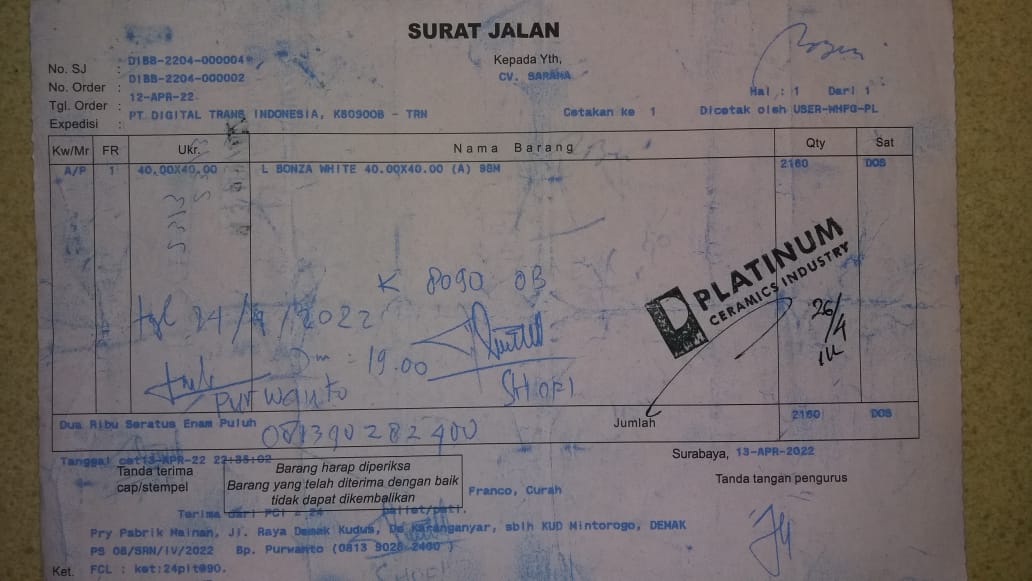 SURAT JALAN
No. SJ : DIBB-2204-000004
No. Order : DIBB-2204-000002
Tgl. Order : 12-APR-22
Expedisi : PT DIGITAL TRANS INDONESIA, K8090OB - TRN
Kepada Yth,
CV. SARANA
Hal : 1 Dari 1
Cetakan ke 1 Dicetak oleh USER-WHFG-PL
Kw/Mr FR Ukr. Nama Barang Qty Sat
A/P 1 40.00X40.00 L BONZA WHITE 40.00X40.00 (A) 98M 2160 DOS
5313
K 8090 OB
tgl 24/4/2022
Jam : 19.00
Purwanto
SHOFI
PLATINUM
CERAMICS INDUSTRY
26/4
Dua Ribu Seratus Enam Puluh
081390282400
Jumlah 2160 DOS
Tanggal cet13-APR-22 22:35:02
Surabaya, 13-APR-2022
Tanda terima
cap/stempel
Barang harap diperiksa
Barang yang telah diterima dengan baik
tidak dapat dikembalikan
Franco, Curah
Tanda tangan pengurus
Terima dari PCI = 24 pallet/peti.
Pry Pabrik Mainan, Jl. Raya Demak Kudus, Ds Karanganyar, sblh KUD Mintorogo, DEMAK
PS 08/SRN/IV/2022 Bp. Purwanto (0813 9028 2400 )
Ket. FCL : ket:24plt@90.